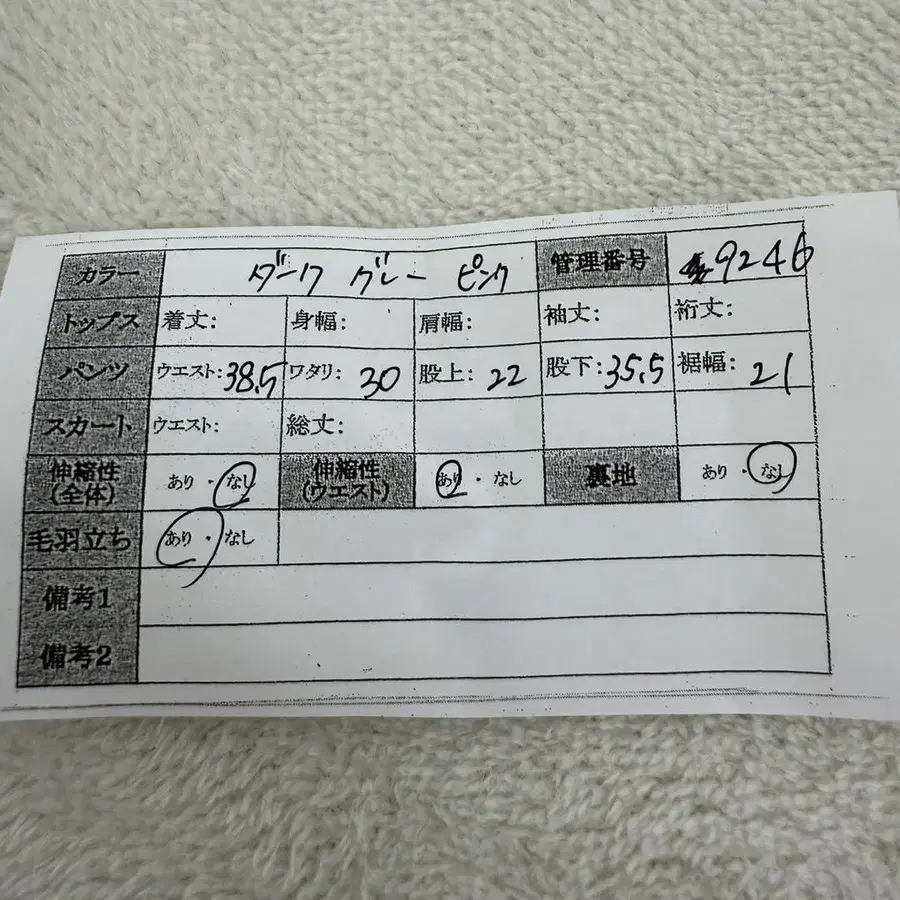 カラー ダーク グレー ピンク 管理番号 9246
トップス 着丈: 身幅: 肩幅: 袖丈: 裄丈:
パンツ ウエスト:38.5 ワタリ: 30 股上: 22 股下:35.5 裾幅: 21
スカート ウエスト: 総丈:
伸縮性(全体) あり・なし 伸縮性(ウエスト) あり・なし 裏地 あり・なし
毛羽立ち あり・なし
備考1
備考2